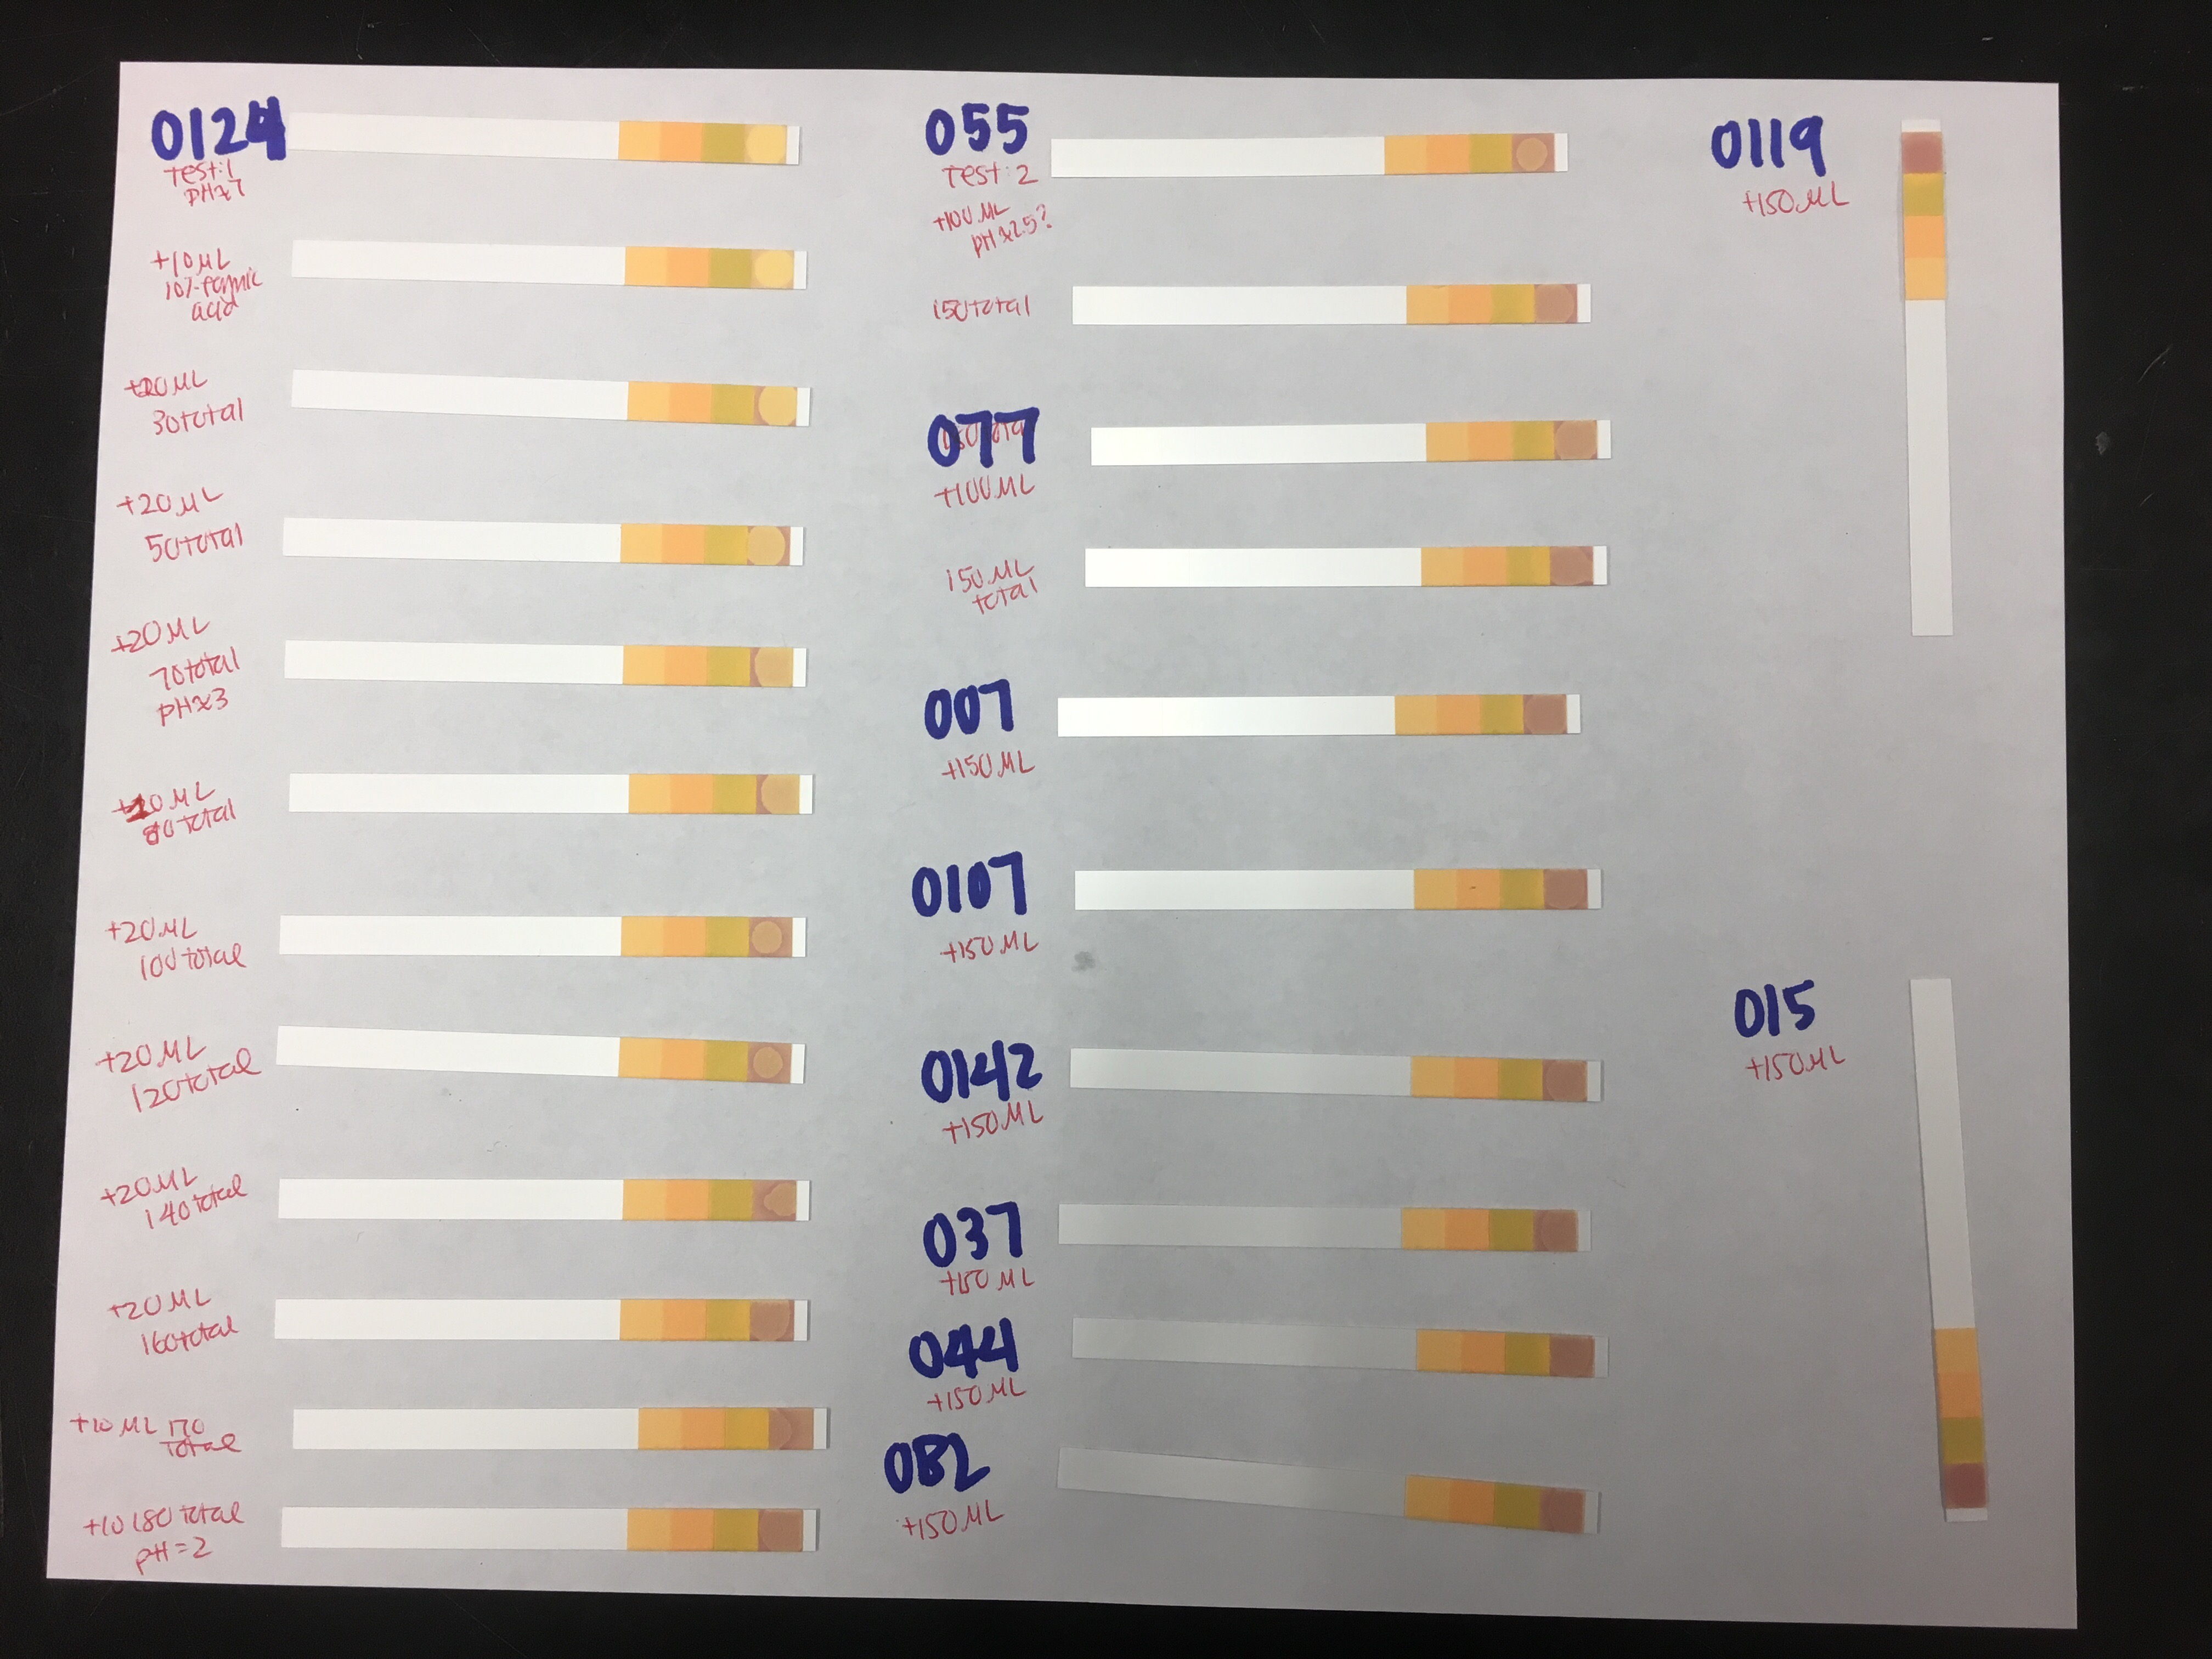 0124
test:1
pH≈7
+10 µL
10% formic
acid
+20 µL
30 total
+20 µL
50 total
+20 µL
70 total
pH≈3
80 total
+20 µL
100 total
+20 µL
120 total
+20 µL
140 total
+20 µL
160 total
+10 µL 170
total
+10 180 total
pH=2
055
Test: 2
+100 µL
pH≈2.5?
150 total
077
+100 µL
150 µL
total
007
+150 µL
0107
+150 µL
0142
+150 µL
037
+150 µL
044
+150 µL
082
+150 µL
0119
+150 µL
015
+150 µL